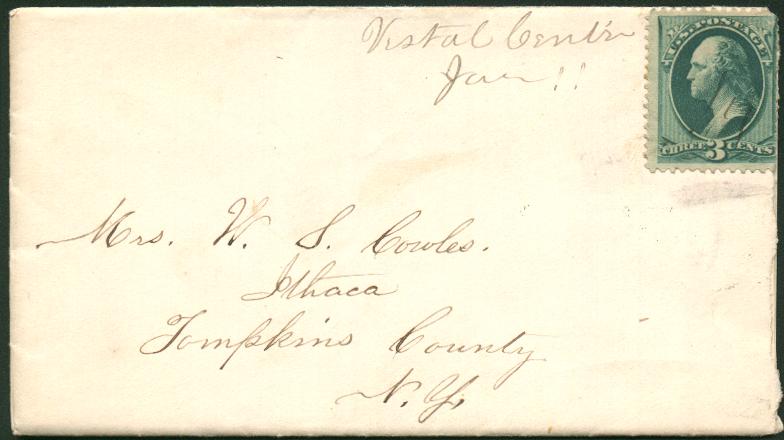 Vestal Centre
Jan 11
U.S. POSTAGE
THREE 3 CENTS
Mrs. W. S. Cowles.
Ithaca
Tompkins County
N.Y.